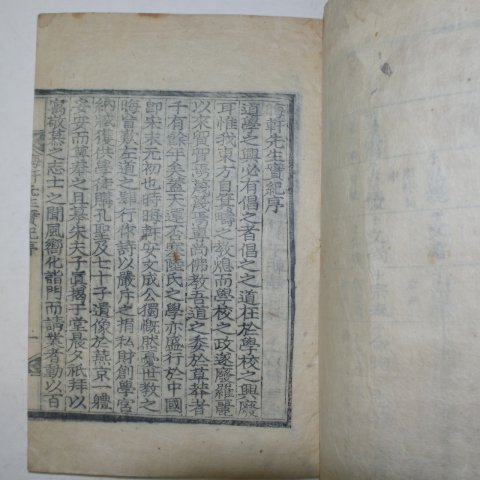 晦軒先生實紀序
道學之興必有倡之者倡之之道在於學校之興廢
耳惟我東方自箕疇之教熄而學校之政遂廢羅麗
以來貿貿焉道喪佛教吾道之委於草莽者
千有餘年矣盖天運否塞陸氏之學亦盛行於中國
即宋末元初也時晦軒安文成公獨慨然憂世教之
晦冒歎左道之肆行作詩以嚴斥之捐私財創學宮
納臧獲俱學徒贖孔聖及七十子遺像於燕京一軆
妥安而尊奉之且摹朱夫子眞揭于堂晨夕祇拜以
寓敬慕之志士之聞風嚮化詣門而請業者動以百
晦軒先生實紀序
一